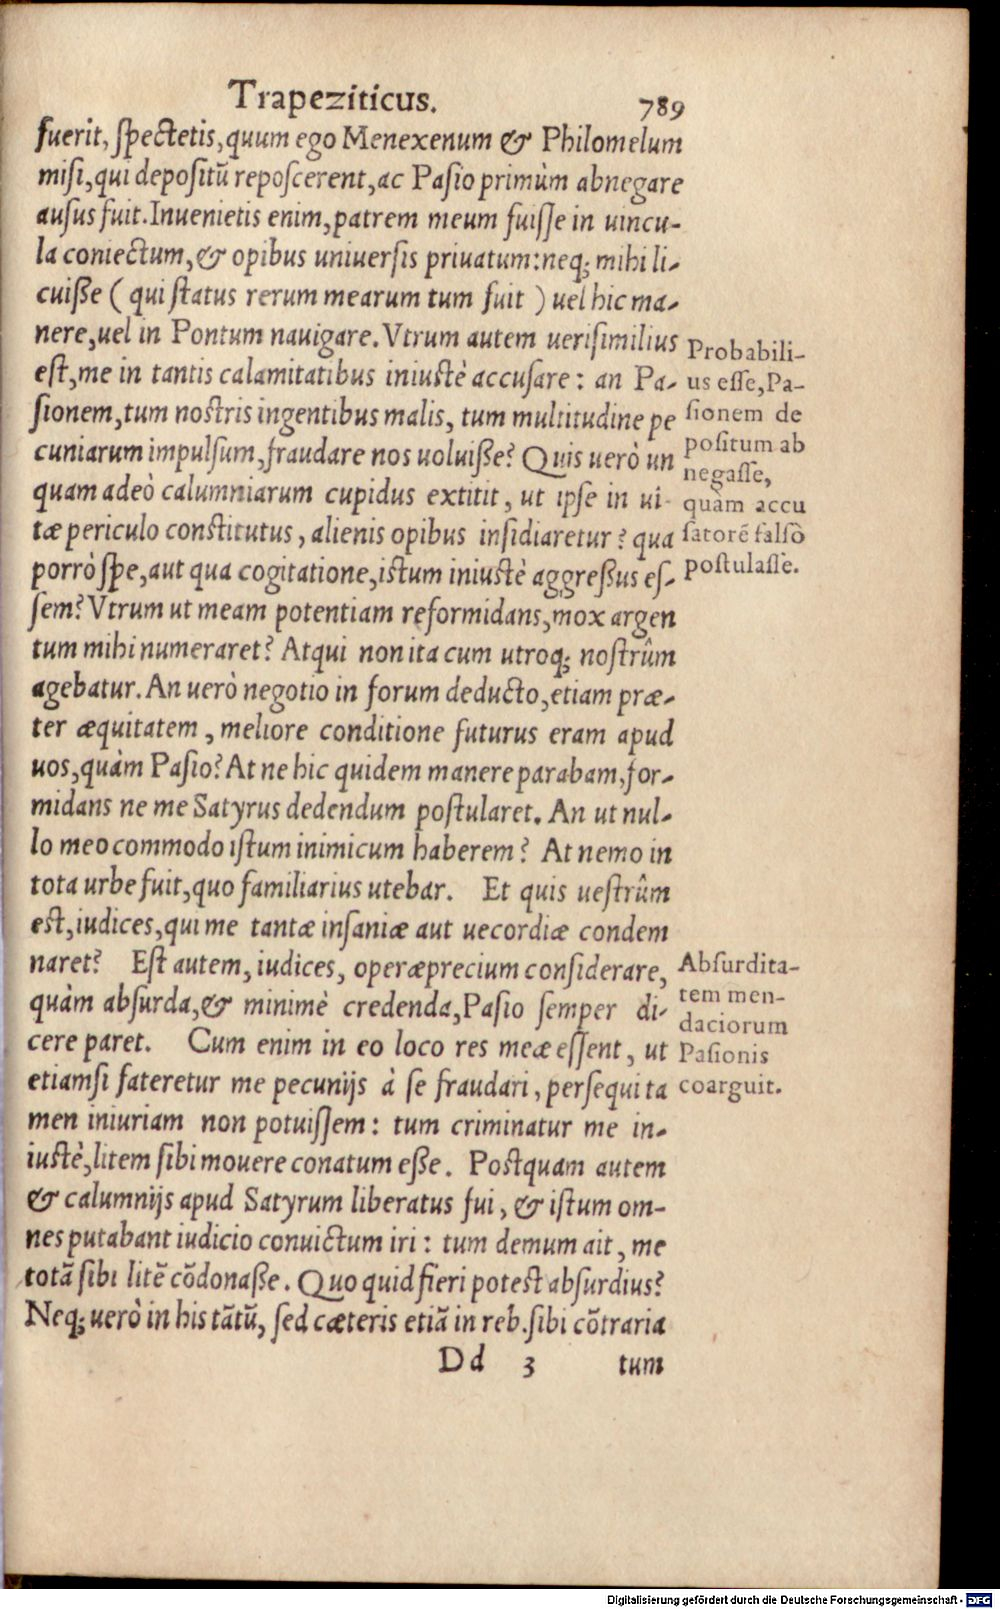 Trapeziticus. 789
fuerit, spectetis, quum ego Menexenum & Philomelum
misi, qui depositũ reposcerent, ac Pasio primùm abnegare
ausus fuit. Inuenietis enim, patrem meum fuisse in uincu-
la coniectum, & opibus uniuersis priuatum: neq; mihi li-
cuisse ( qui status rerum mearum tum fuit ) uel hic ma-
nere, uel in Pontum nauigare. Vtrum autem uerisimilius
est, me in tantis calamitatibus iniustè accusare: an Pa-
sionem, tum nostris ingentibus malis, tum multitudine pe
cuniarum impulsum, fraudare nos uoluisse? Quis uerò un
quam adeò calumniarum cupidus extitit, ut ipse in ui-
tæ periculo constitutus, alienis opibus insidiaretur? qua
porrò spe, aut qua cogitatione, istum iniustè aggressus es-
sem? Vtrum ut meam potentiam reformidans, mox argen
tum mihi numeraret? Atqui non ita cum utroq; nostrûm
agebatur. An uerò negotio in forum deducto, etiam præ-
ter æquitatem, meliore conditione futurus eram apud
uos, quàm Pasio? At ne hic quidem manere parabam, for-
midans ne me Satyrus dedendum postularet. An ut nul-
lo meo commodo istum inimicum haberem? At nemo in
tota urbe fuit, quo familiarius utebar. Et quis uestrûm
est, iudices, qui me tantæ insaniæ aut uecordiæ condem
naret? Est autem, iudices, operæprecium considerare,
quàm absurda, & minimè credenda, Pasio semper di-
cere paret. Cum enim in eo loco res meæ essent, ut
etiamsi fateretur me pecunijs à se fraudari, persequi ta
men iniuriam non potuissem: tum criminatur me in-
iustè, litem sibi mouere conatum esse. Postquam autem
& calumnijs apud Satyrum liberatus fui, & istum om-
nes putabant iudicio conuictum iri: tum demum ait, me
totã sibi litẽ cõdonasse. Quo quid fieri potest absurdius?
Neq; uerò in his tãtũ, sed cæteris etiã in reb. sibi cõtraria
Dd 3 tum
Probabili-
us esse, Pa-
sionem de
positum ab
negasse,
quàm accu
satorẽ falsò
postulasse.
Absurdita-
tem men-
daciorum
Pasionis
coarguit.
Digitalisierung gefördert durch die Deutsche Forschungsgemeinschaft - DFG